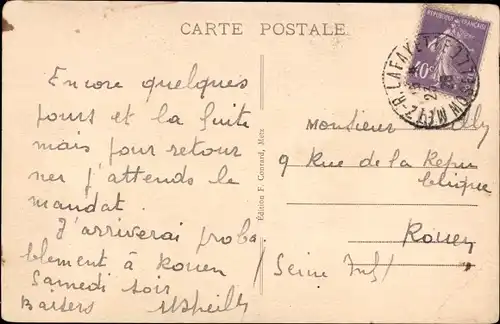 CARTE POSTALE
RÉPUBLIQUE FRANÇAISE
40c
METZ-R. LAFAYETTE
Encore quelques
jours et la fuite
mais pour retour
ner j'attends le
mandat.
J'arriverai proba
blement à Rouen
Samedi soir
Baisers
Édition F. Conrard, Metz
Monsieur
9 Rue de la Repu
blique
Rouen
Seine Inf/